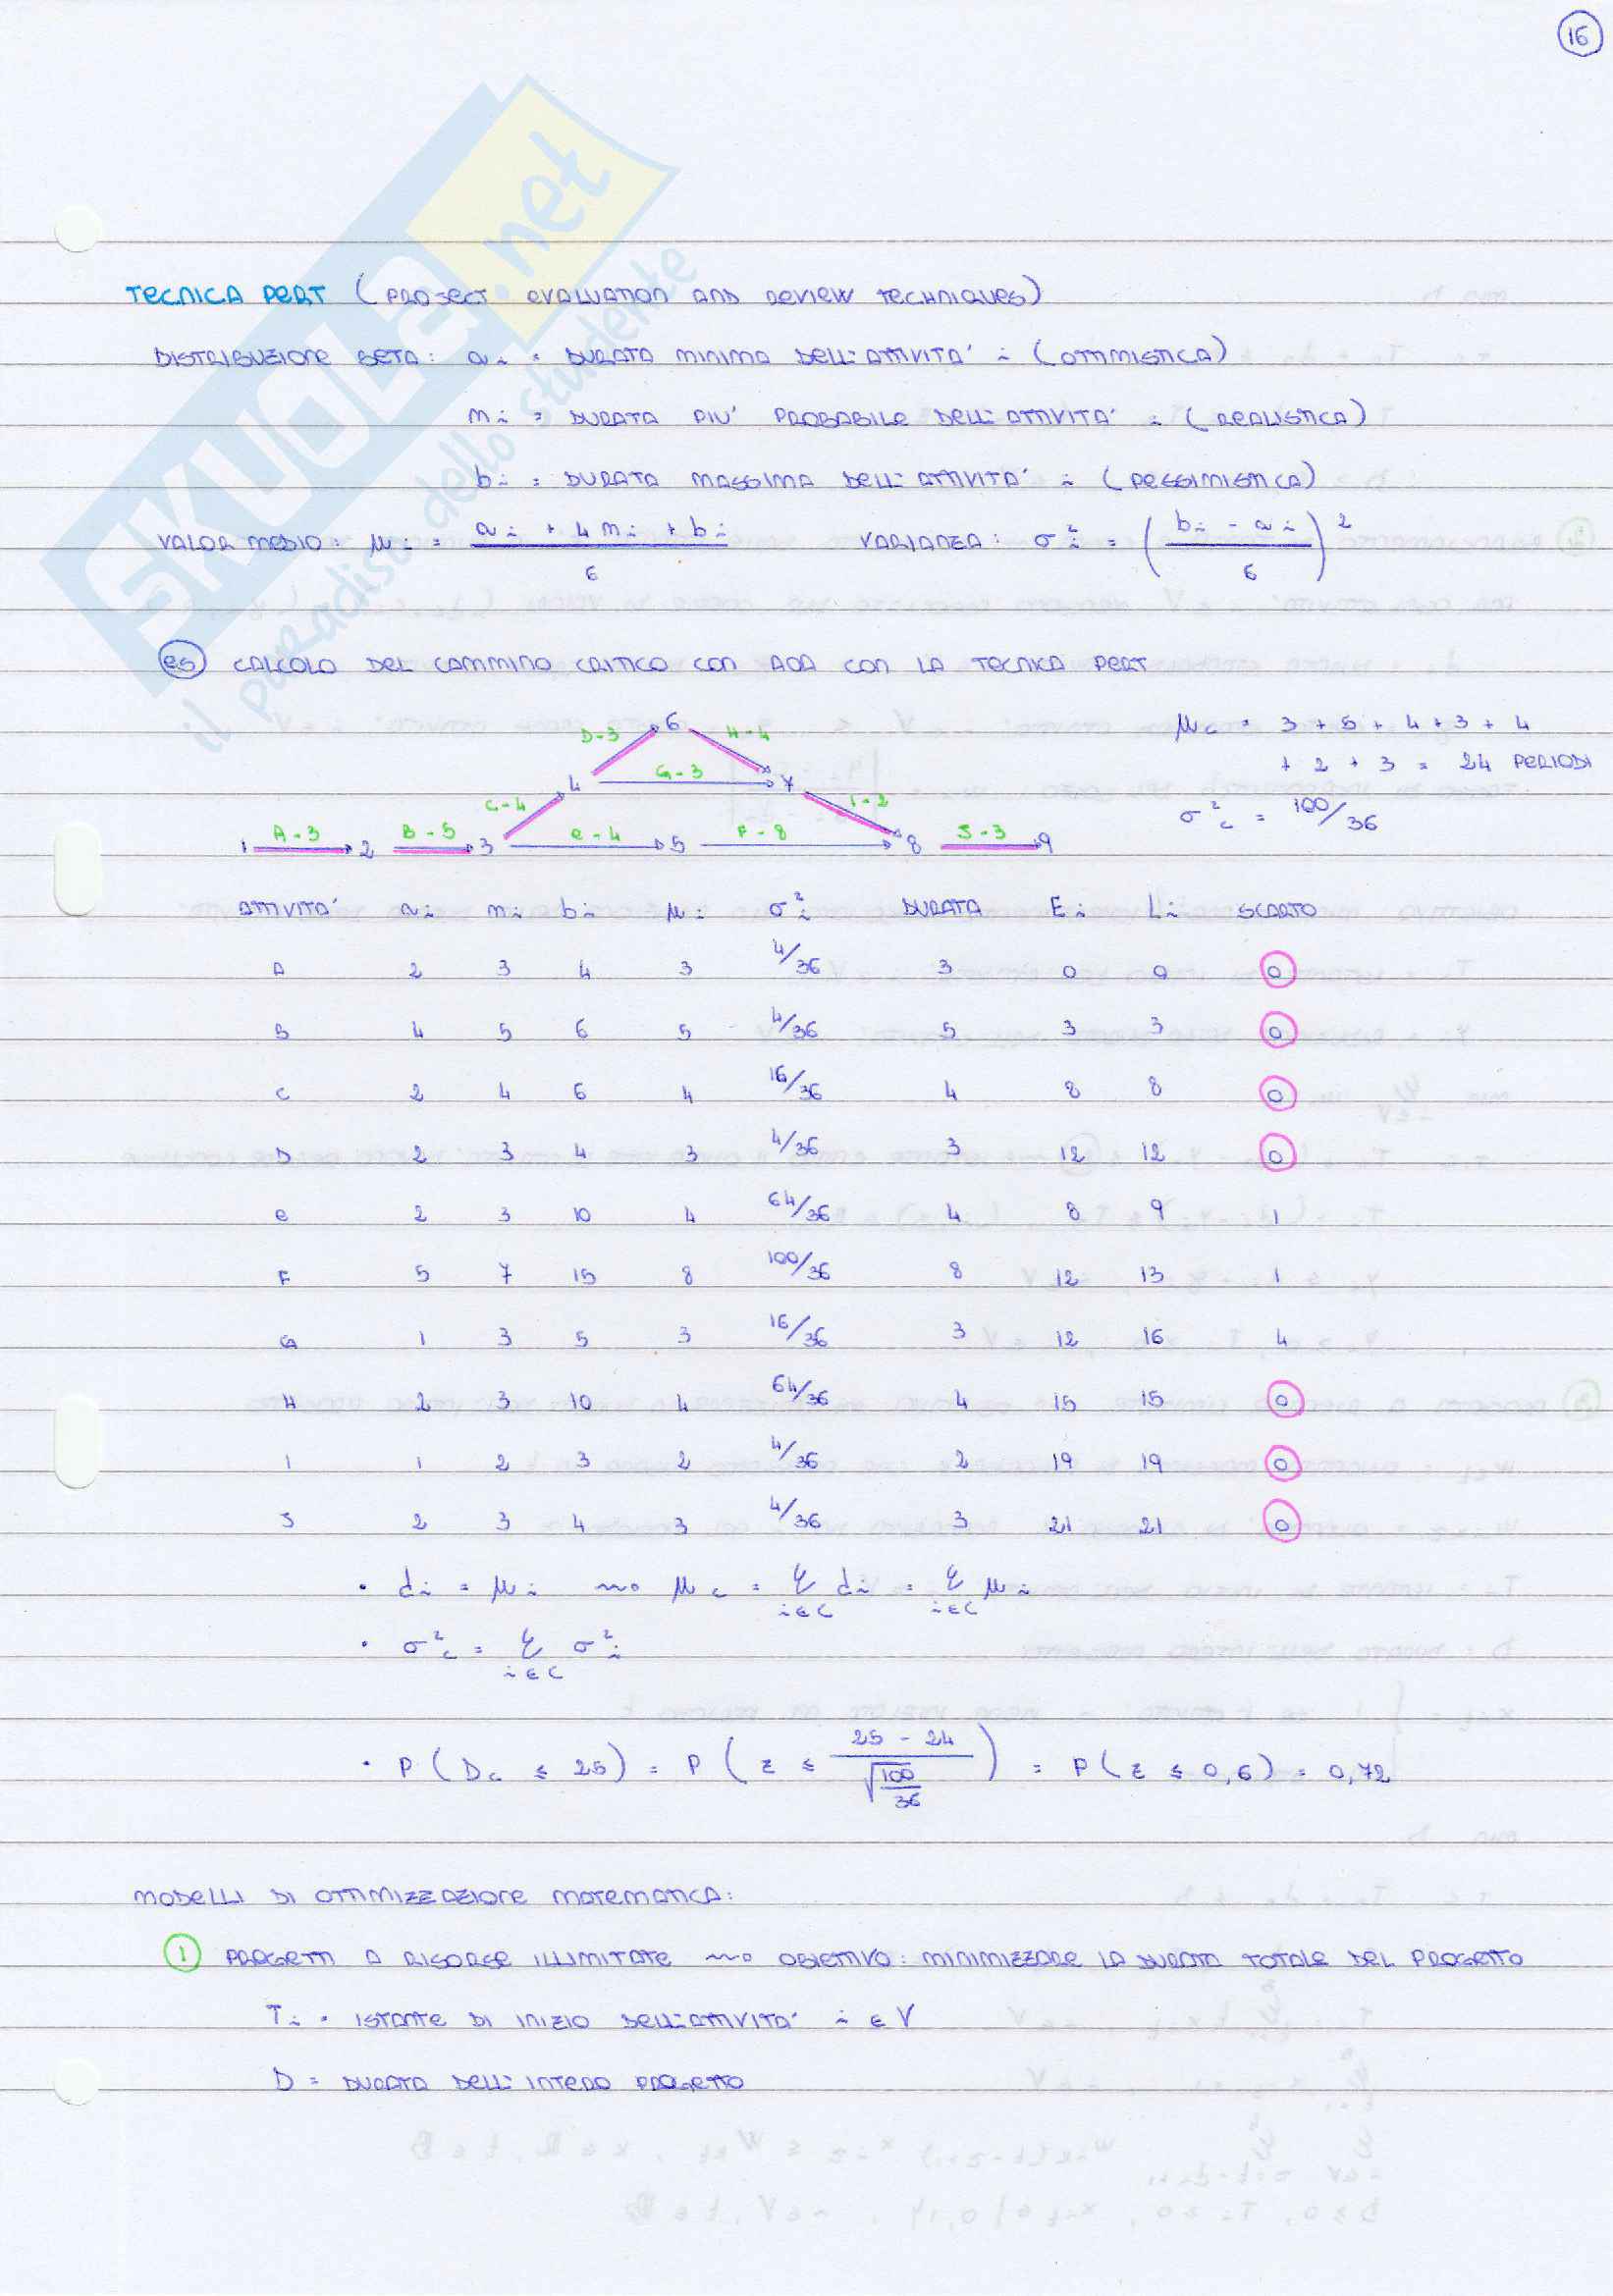 16
SKUOLA.net
il paradiso dello studente
TECNICA PERT (PROJECT EVALUATION AND REVIEW TECHNIQUES)
DISTRIBUZIONE BETA: ai = DURATA MINIMA DELL'ATTIVITA' i (OTTIMISTICA)
mi = DURATA PIU' PROBABILE DELL'ATTIVITA' i (REALISTICA)
bi = DURATA MASSIMA DELL'ATTIVITA' i (PESSIMISTICA)
VALOR MEDIO: μi = (ai + 4mi + bi)/6 VARIANZA: σ²i = ((bi - ai)/6)²
es CALCOLO DEL CAMMINO CRITICO CON AOA CON LA TECNICA PERT
6
D-3 H-4
4 G-3 7
C-4 I-2
1 A-3 2 B-5 3 E-4 5 F-8 8 J-3 9
μc = 3 + 5 + 4 + 3 + 4
+ 2 + 3 = 24 PERIODI
σ²c = 100/36
ATTIVITA' ai mi bi μi σ²i DURATA Ei Li SCARTO
A 2 3 4 3 4/36 3 0 0 0
B 4 5 6 5 4/36 5 3 3 0
C 2 4 6 4 16/36 4 8 8 0
D 2 3 4 3 4/36 3 12 12 0
E 2 3 10 4 64/36 4 8 9 1
F 5 7 15 8 100/36 8 12 13 1
G 1 3 5 3 16/36 3 12 16 4
H 2 3 10 4 64/36 4 15 15 0
I 1 2 3 2 4/36 2 19 19 0
J 2 3 4 3 4/36 3 21 21 0
• di = μi ⇝ μc = Σ i∈C di = Σ i∈C μi
• σ²c = Σ i∈C σ²i
• P(Dc ≤ 25) = P(z ≤ (25 - 24)/√(100/36)) = P(z ≤ 0,6) = 0,72
MODELLI DI OTTIMIZZAZIONE MATEMATICA:
1 PROGETTI A RISORSE ILLIMITATE ⇝ OBIETTIVO: MINIMIZZARE LA DURATA TOTALE DEL PROGETTO
Ti = ISTANTE DI INIZIO DELL'ATTIVITA' i ∈ V
D = DURATA DELL'INTERO PROGETTO